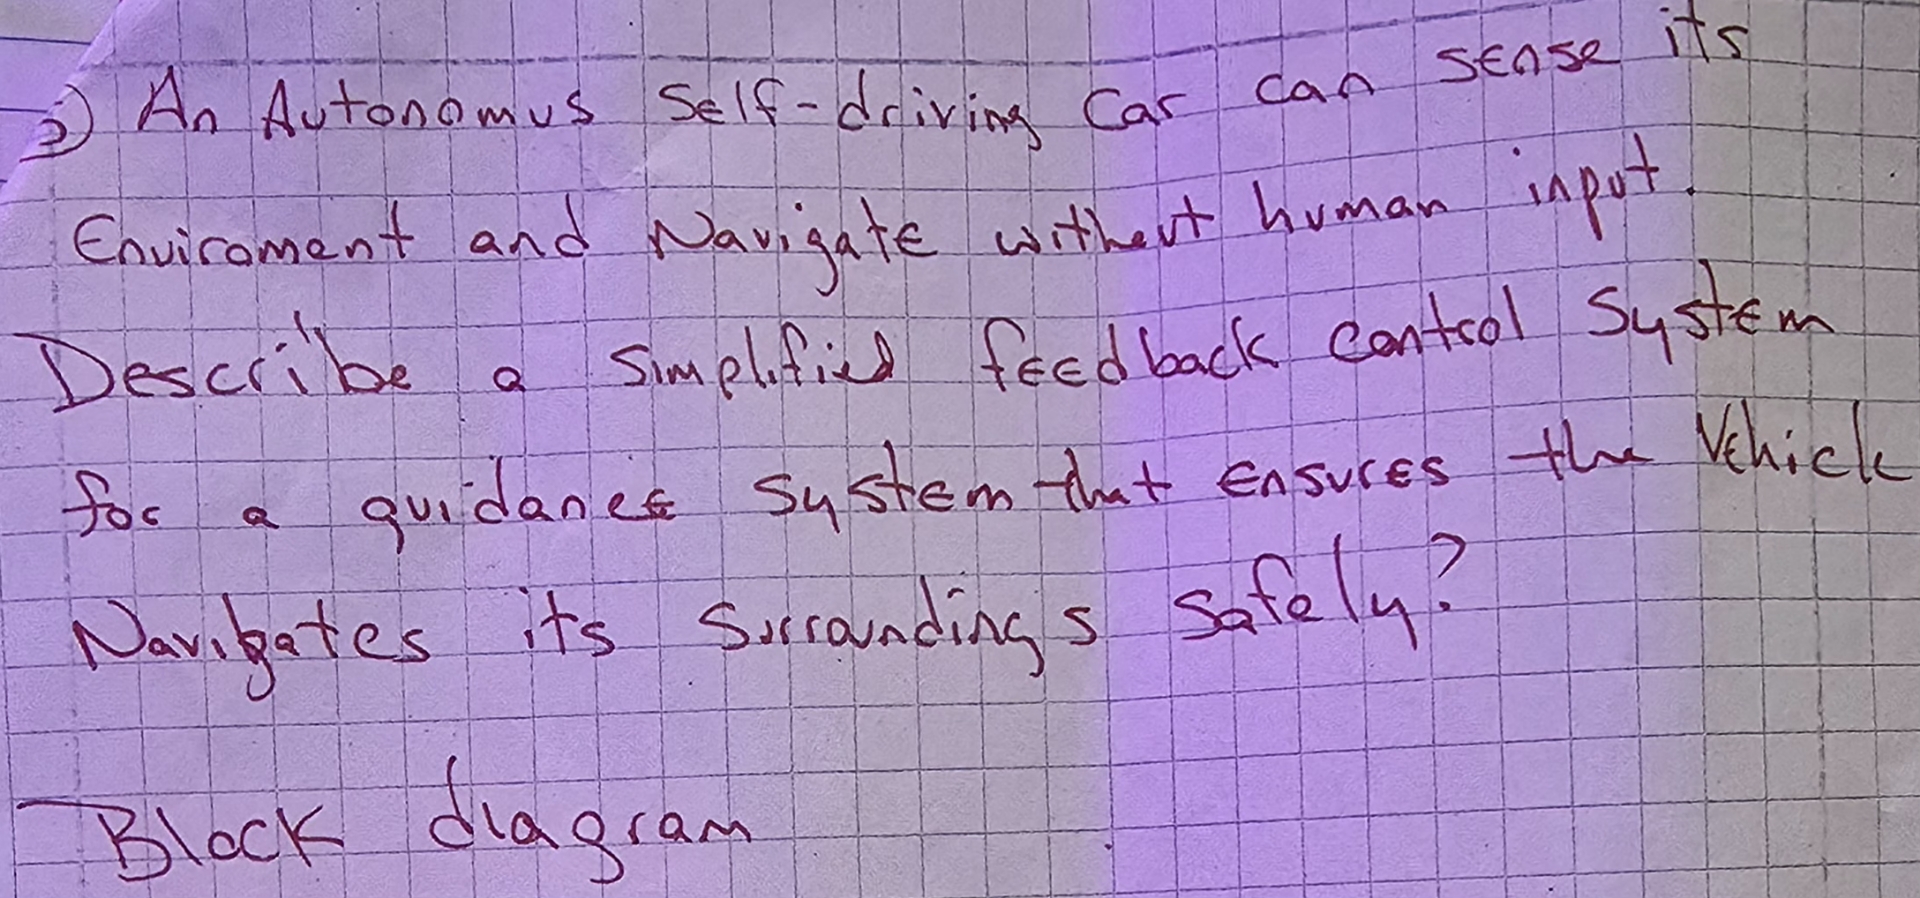 2) An Autonomus Self-driving Car can sense its
Enviroment and Navigate without human input.
Describe a Simplified feedback control System
for a guidance System that ensures the Vehicle
Navigates its Surroundings Safely?
Block diagram